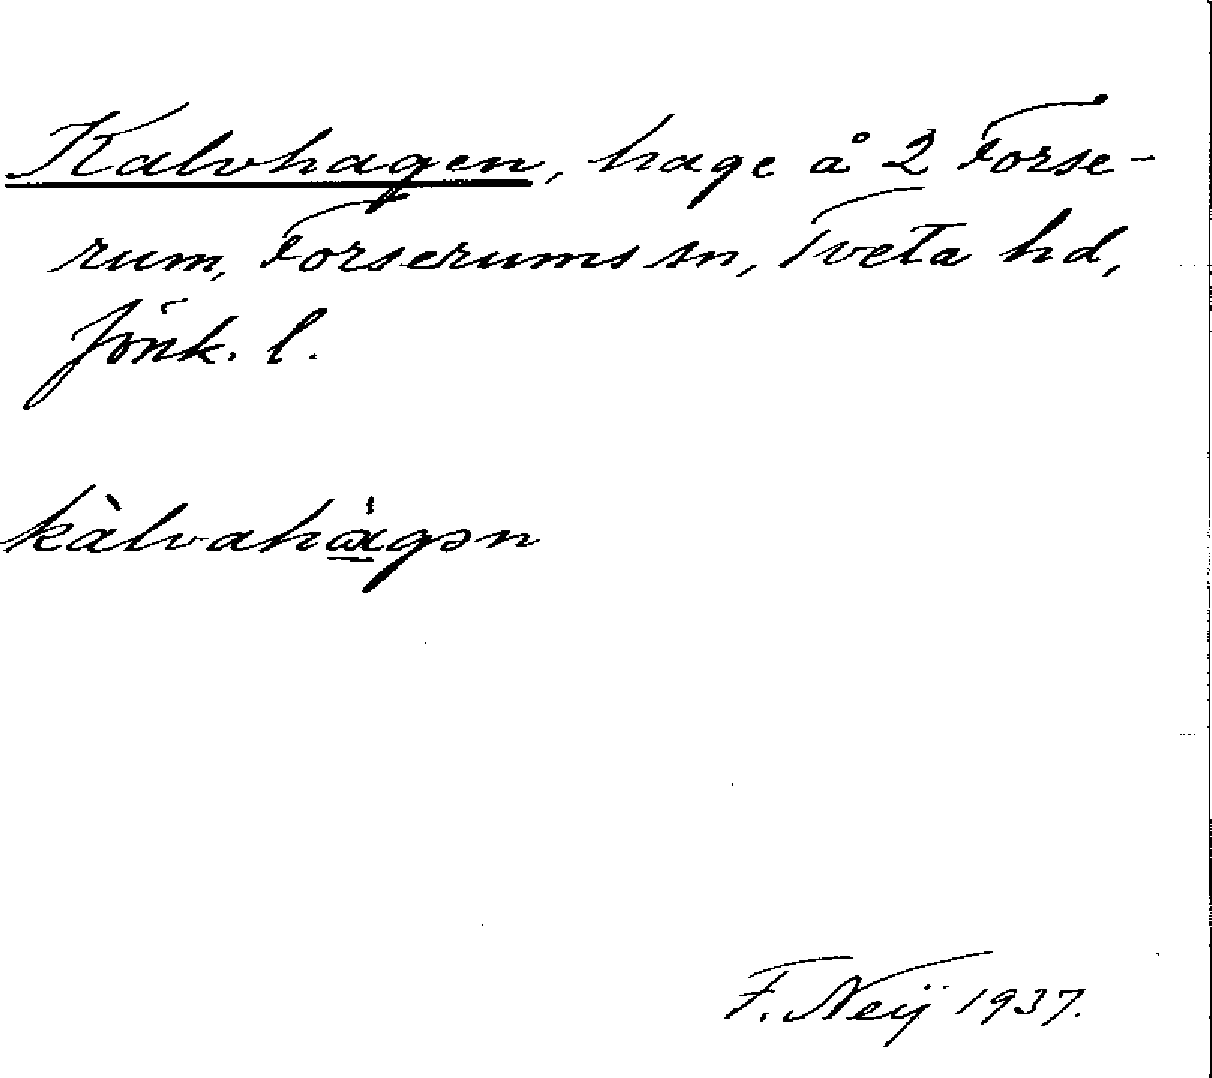 Kalvhagen, hage å 2 Forse-
rum, Forserums sn, Tveta hd,
Jönk. l.
kàlvahɑ̀gən
F. Neij 1937.